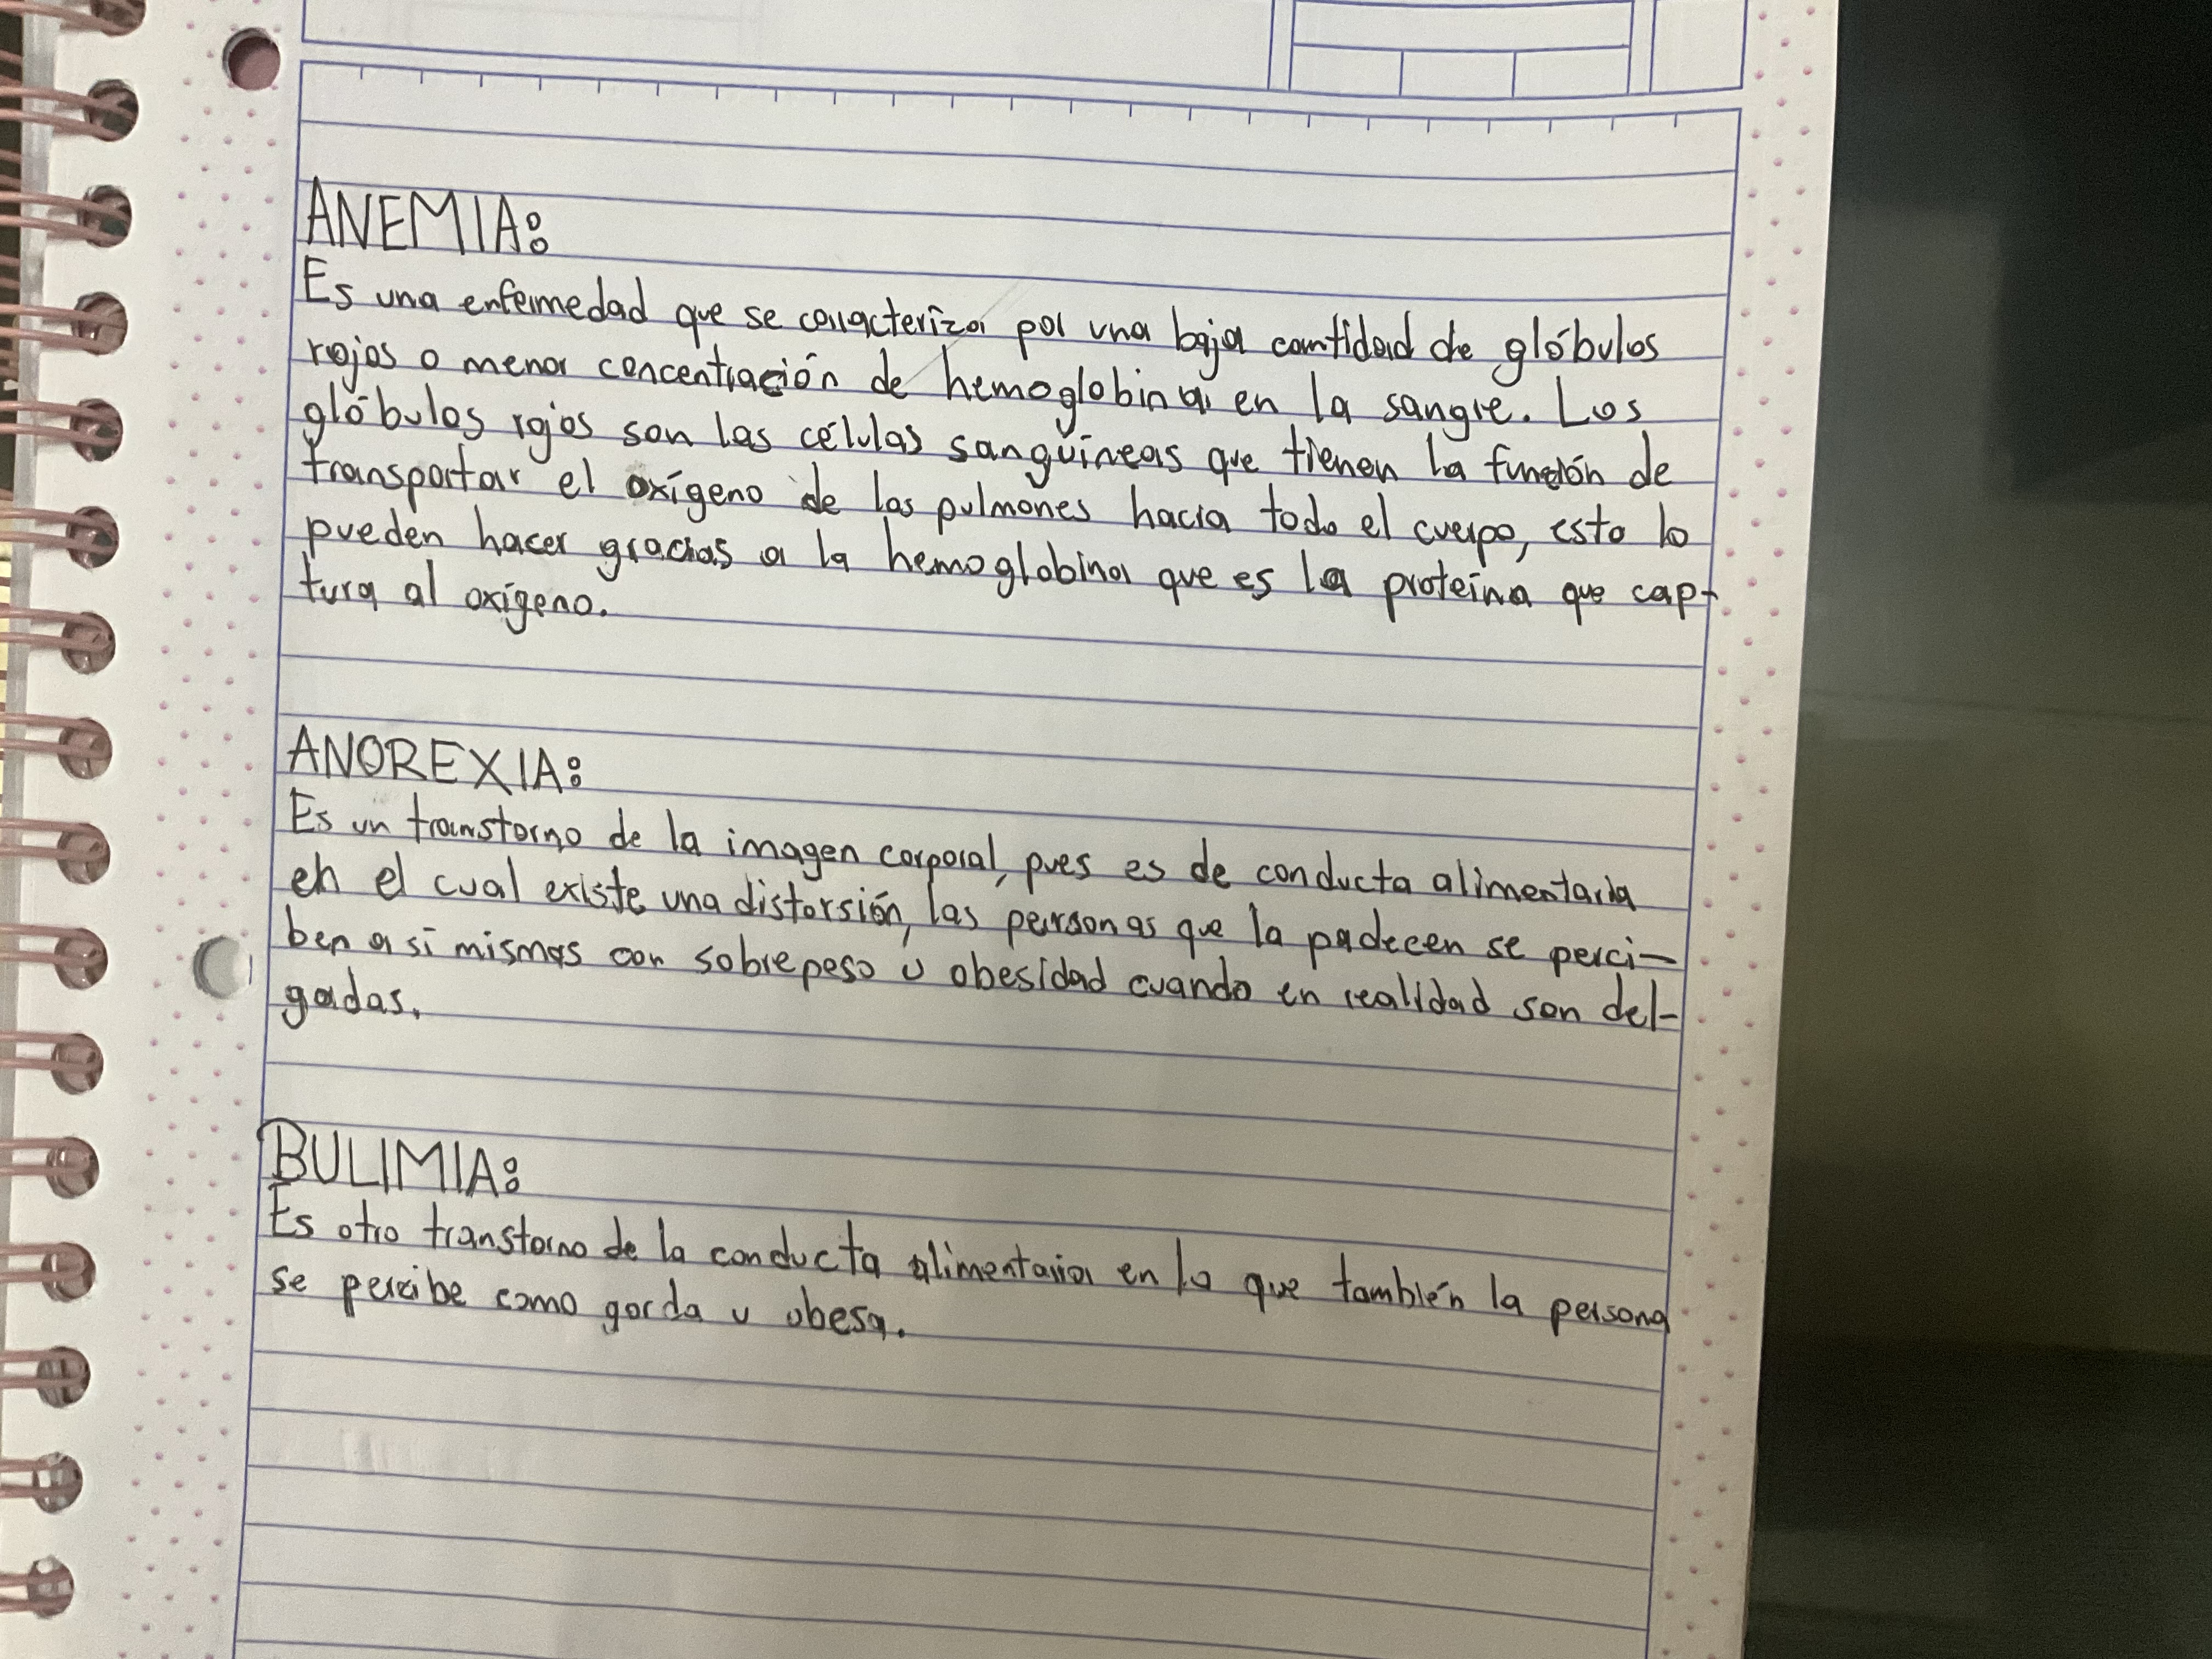 ANEMIA:
Es una enfermedad que se caracteriza por una baja cantidad de glóbulos
rojos o menor concentración de hemoglobina en la sangre. Los
glóbulos rojos son las células sanguíneas que tienen la función de
transportar el oxígeno de los pulmones hacia todo el cuerpo, esto lo
pueden hacer gracias a la hemoglobina que es la proteína que cap-
tura al oxígeno.
ANOREXIA:
Es un transtorno de la imagen corporal, pues es de conducta alimentaria
en el cual existe una distorsión, las personas que la padecen se perci-
ben a si mismas con sobrepeso u obesidad cuando en realidad son del-
gadas.
BULIMIA:
Es otro transtorno de la conducta alimentaria en lo que también la persona
se percibe como gorda u obesa.